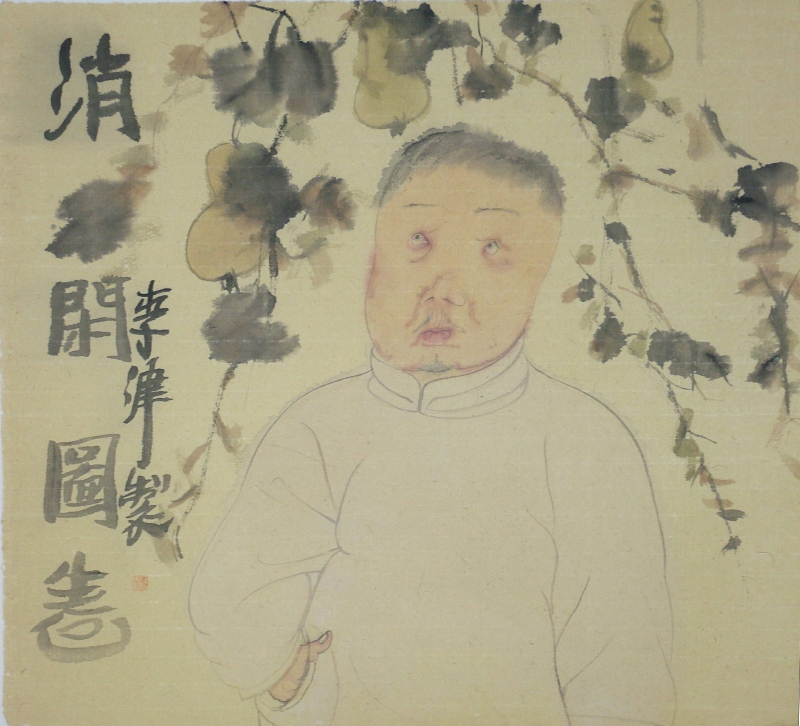 消閑圖卷
李津製